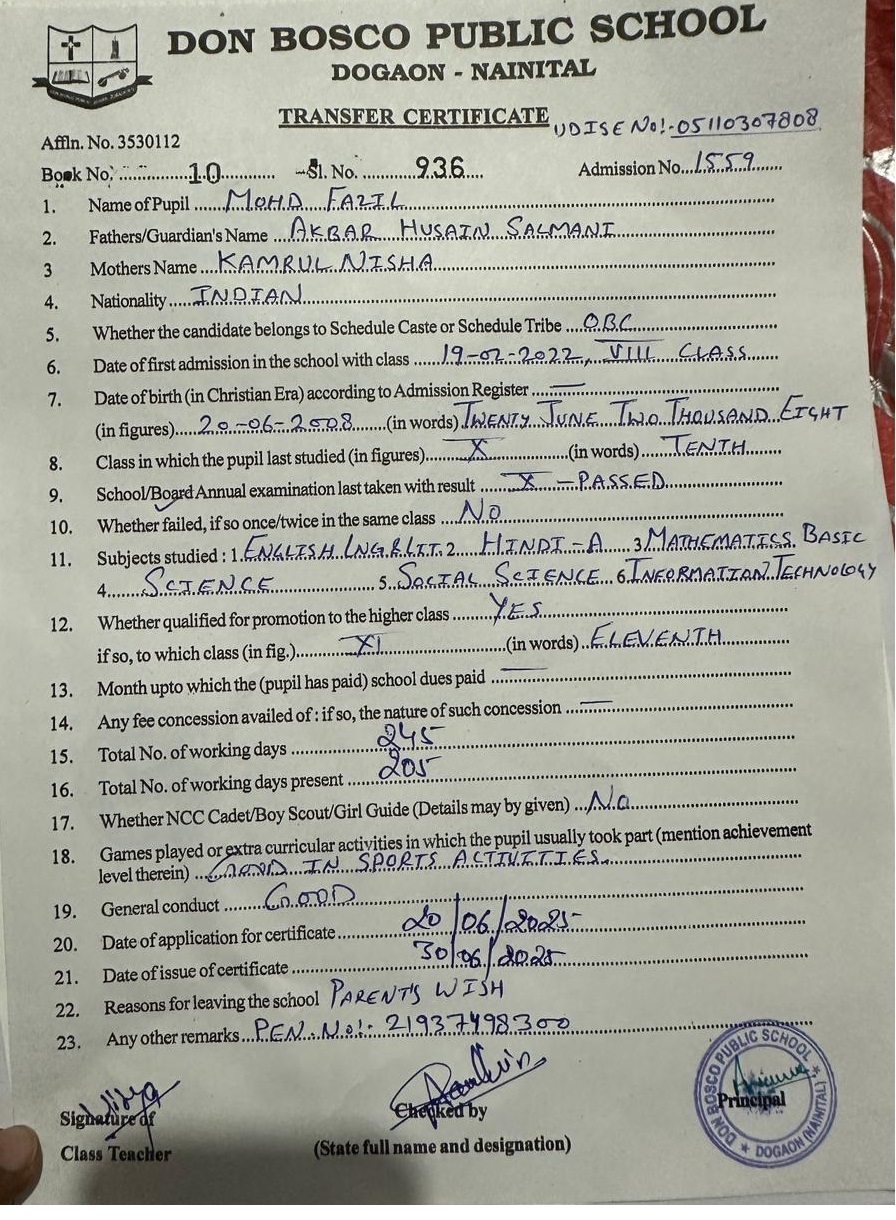 DON BOSCO PUBLIC SCHOOL
DOGAON - NAINITAL
TRANSFER CERTIFICATE UDISE No:-05110307808
Affln. No. 3530112
Book No. 10 Sl. No. 936 Admission No. 1559
1. Name of Pupil MOHD FAZIL
2. Fathers/Guardian's Name AKBAR HUSAIN SALMANI
3 Mothers Name KAMRUL NISHA
4. Nationality INDIAN
5. Whether the candidate belongs to Schedule Caste or Schedule Tribe OBC
6. Date of first admission in the school with class 19-02-2022, VIII CLASS
7. Date of birth (in Christian Era) according to Admission Register —
(in figures) 20-06-2008 (in words) TWENTY JUNE TWO THOUSAND EIGHT
8. Class in which the pupil last studied (in figures) X (in words) TENTH
9. School/Board Annual examination last taken with result X - PASSED
10. Whether failed, if so once/twice in the same class NO
11. Subjects studied : 1. ENGLISH LNG&LIT. 2 HINDI-A 3 MATHEMATICS BASIC
4. SCIENCE 5. SOCIAL SCIENCE 6. INFORMATION TECHNOLOGY
12. Whether qualified for promotion to the higher class YES
if so, to which class (in fig.) XI (in words) ELEVENTH
13. Month upto which the (pupil has paid) school dues paid —
14. Any fee concession availed of : if so, the nature of such concession —
15. Total No. of working days 245
16. Total No. of working days present 205
17. Whether NCC Cadet/Boy Scout/Girl Guide (Details may by given) No
18. Games played or extra curricular activities in which the pupil usually took part (mention achievement
level therein) GOOD IN SPORTS ACTIVITIES
19. General conduct GOOD
20. Date of application for certificate 20/06/2025
21. Date of issue of certificate 30/06/2025
22. Reasons for leaving the school PARENT'S WISH
23. Any other remarks PEN. No:- 21937498300
Signature of Checked by Principal
Class Teacher (State full name and designation)
DON BOSCO PUBLIC SCHOOL ★ DOGAON (NAINITAL) ★